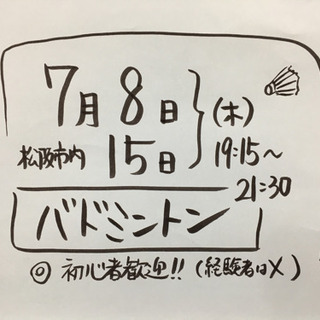 7月8日 (木)
松阪市内 15日 19:15〜
21:30
バドミントン
◎ 初心者歓迎!! (経験者は×)